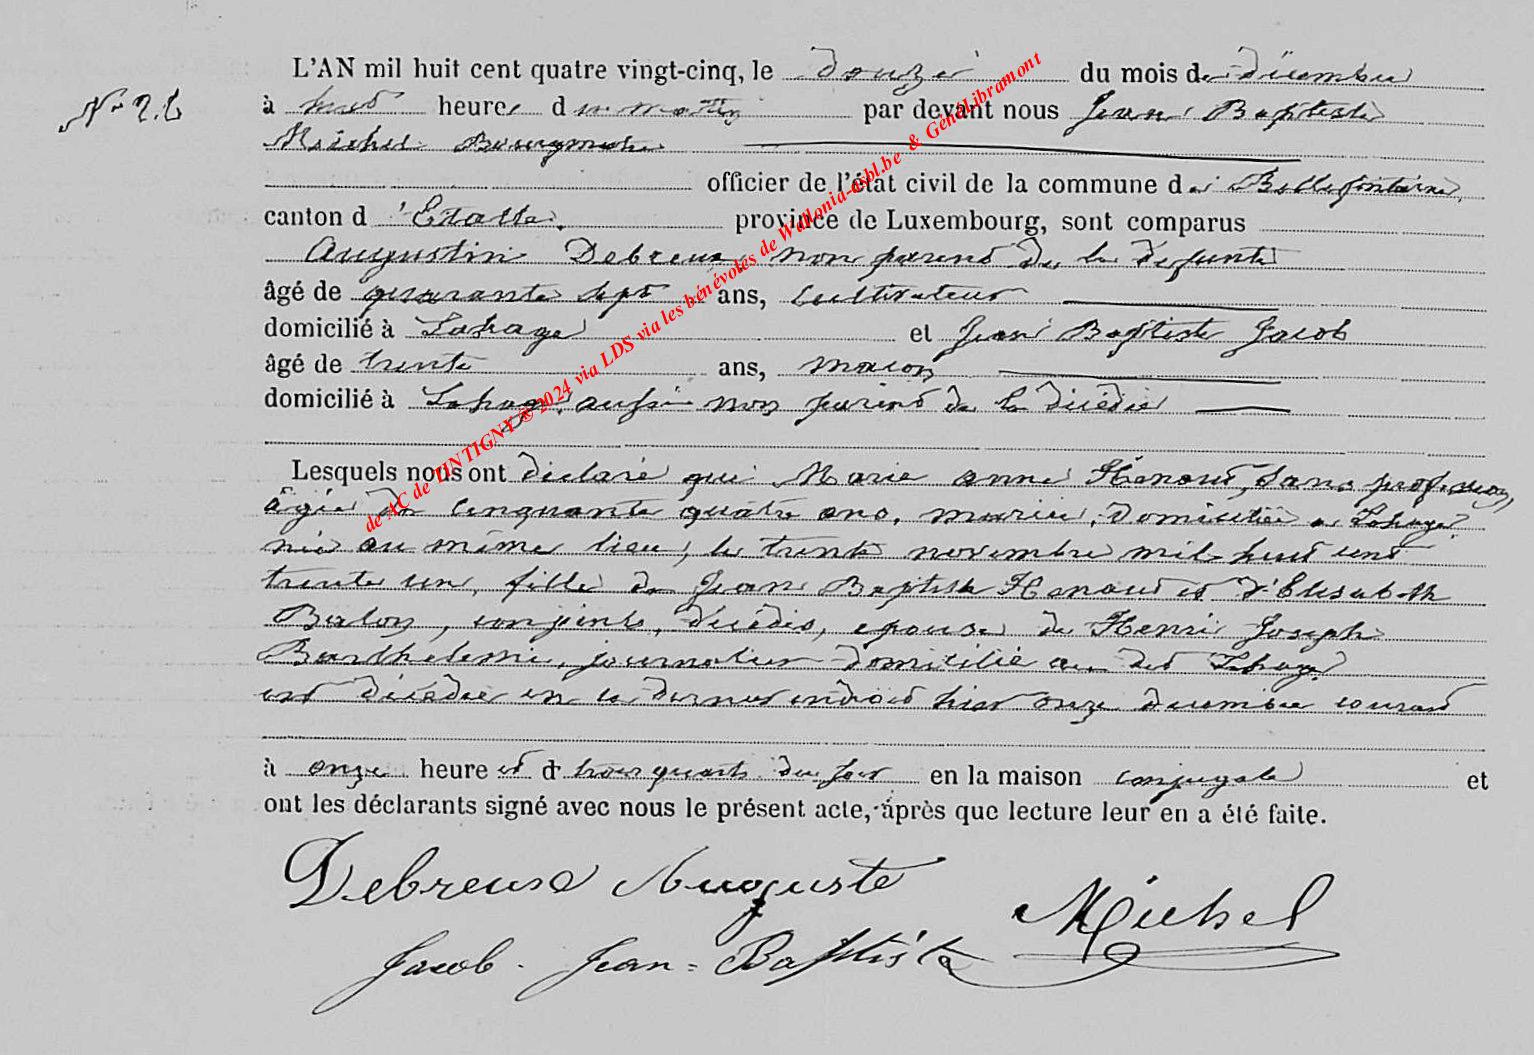 L'AN mil huit cent quatre vingt-cinq, le douze du mois de décembre
N° 26
à huit heures du matin par devant nous Jean Baptiste
Michel Bourgmestre
officier de l'état civil de la commune de Bellefontaine,
canton d'Etalle, province de Luxembourg, sont comparus
Augustin Debreux non parent de la défunte
âgé de quarante sept ans, Cultivateur
domicilié à Lahage et Jean Baptiste Jacob
âgé de trente ans, maçon
domicilié à Lahage aussi non parent de la décédée
Lesquels nous ont déclaré que Marie Anne Hanout, sans profession,
âgée de cinquante quatre ans, mariée, domiciliée à Lahage
née au même lieu, le trente novembre mil huit cent
trente un, fille de Jean Baptiste Hanout et d'Elisabeth
Balon, conjoints, décédés, épouse de Henri Joseph
Barthelemi, journalier domicilié au dit Lahage
est décédée en ce dernier endroit hier onze décembre courant
à onze heures et d trois quarts du soir en la maison conjugale et
ont les déclarants signé avec nous le présent acte, après que lecture leur en a été faite.
Debreux Auguste
Michel
Jacob - Jean = Baptiste
de AC de TINTIGNY © 2024 via LDS via les bénévoles de Wallonia-asbl.be & GénéaLibramont